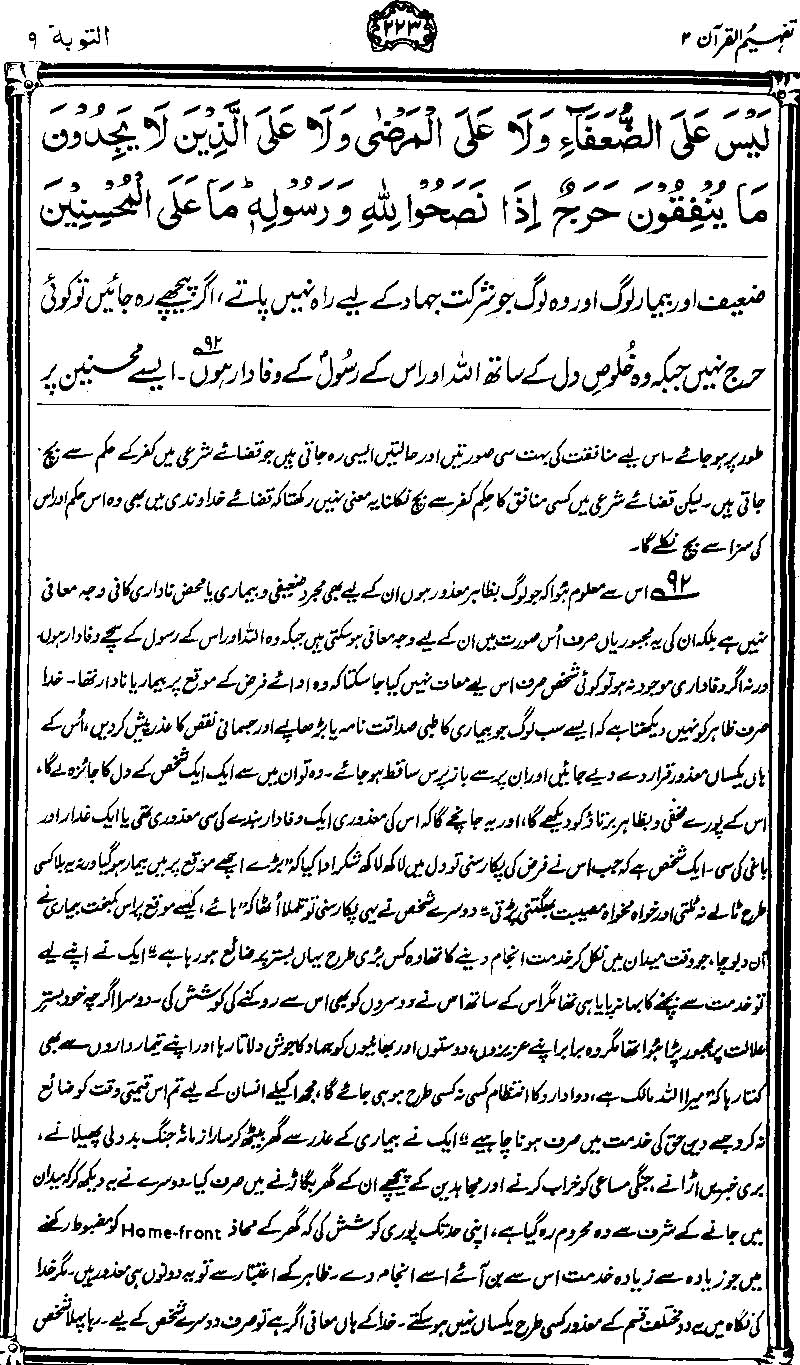 تفہیم القرآن ۲
۲۲۳
التوبۃ ۹
لَيْسَ عَلَى الضُّعَفَآءِ وَلَا عَلَى الْمَرْضٰى وَلَا عَلَى الَّذِيْنَ لَا يَجِدُوْنَ
مَا يُنْفِقُوْنَ حَرَجٌ اِذَا نَصَحُوْا لِلّٰهِ وَرَسُوْلِهٖ ؕ مَا عَلَى الْمُحْسِنِيْنَ
ضعیف اور بیمار لوگ اور وہ لوگ جو شرکت جہاد کے لیے راہ نہیں پاتے، اگر پیچھے رہ جائیں تو کوئی
حرج نہیں جبکہ وہ خُلوصِ دل کے ساتھ اللہ اور اس کے رسُولؐ کے وفادار ہوں ۹۲۔ ایسے محسنین پر
طور پر ہو جائے۔ اس لیے منافقت کی بہت سی صورتیں اور حالتیں ایسی رہ جاتی ہیں جو قضائے شرعی میں کفر کے حکم سے بچ
جاتی ہیں۔ لیکن قضائے شرعی میں کسی منافق کا حکم کفر سے بچ نکلنا یہ معنی نہیں رکھتا کہ قضائے خداوندی میں بھی وہ اس حکم اور اس
کی سزا سے بچ نکلے گا۔
۹۲ اس سے معلوم ہُوا کہ جو لوگ بظاہر معذور ہوں ان کے لیے بھی مجرد ضعیفی و بیماری یا محض ناداری کافی وجہ معافی
نہیں ہے بلکہ ان کی یہ مجبوریاں صرف اُس صورت میں ان کے لیے وجہ معافی ہو سکتی ہیں جبکہ وہ اللہ اور اس کے رسول کے سچے وفادار ہوں۔
ورنہ اگر وفاداری موجود نہ ہو تو کوئی شخص صرف اس لیے معاف نہیں کیا جا سکتا کہ وہ ادائے فرض کے موقع پر بیمار یا نادار تھا۔ خدا
صرف ظاہر کو نہیں دیکھتا ہے کہ ایسے سب لوگ جو بیماری کا طبی صداقت نامہ یا بڑھاپے اور جسمانی نقص کا عذر پیش کر دیں، اُس کے
ہاں یکساں معذور قرار دے دیے جائیں اور ان پر سے باز پرس ساقط ہو جائے۔ وہ تو ان میں سے ایک ایک شخص کے دل کا جائزہ لے گا،
اس کے پورے مخفی و بظاہر برتاؤ کو دیکھے گا، اور یہ جانچے گا کہ اس کی معذوری ایک وفادار بندے کی سی معذوری تھی یا ایک غدار اور
باغی کی سی۔ ایک شخص ہے کہ جب اس نے فرض کی پکار سنی تو دل میں لاکھ لاکھ شکر ادا کیا کہ ”بڑے اچھے موقع پر میں بیمار ہو گیا ورنہ یہ بلا کسی
طرح ٹالے نہ ٹلتی اور خواہ مخواہ مصیبت بھگتنی پڑتی“ دوسرے شخص نے یہی پکار سنی تو تلملا اُٹھا کہ ”ہائے، کیسے موقع پر اس کمبخت بیماری نے
آن دبوچا، جو وقت میدان میں نکل کر خدمت انجام دینے کا تھا وہ کس بڑی طرح یہاں بستر پر ضائع ہو رہا ہے“ ایک نے اپنے لیے
تو خدمت سے بچنے کا بہانہ پایا ہی تھا مگر اس کے ساتھ اس نے دوسروں کو بھی اس سے روکنے کی کوشش کی۔ دوسرا اگرچہ خود بستر
علالت پر مجبور پڑا ہُوا تھا مگر وہ برابر اپنے عزیزوں، دوستوں اور بھائیوں کو جہاد کا جوش دلاتا رہا اور اپنے تیمارداروں سے بھی
کہتا رہا کہ ”میرا اللہ مالک ہے، دوا دارو کا انتظام کسی نہ کسی طرح ہو ہی جائے گا، مجھ اکیلے انسان کے لیے تم اس قیمتی وقت کو ضائع
نہ کرو جسے دین حق کی خدمت میں صرف ہونا چاہیے“ ایک نے بیماری کے عذر سے گھر بیٹھ کر سارا زمانۂ جنگ بد دلی پھیلانے،
بری خبریں اڑانے، جنگی مساعی کو خراب کرنے اور مجاہدین کے پیچھے ان کے گھر بگاڑنے میں صرف کیا۔ دوسرے نے یہ دیکھ کر کہ میدان
میں جانے کے شرف سے وہ محروم رہ گیا ہے، اپنی حد تک پوری کوشش کی کہ گھر کے محاذ Home-front کو مضبوط رکھنے
میں جو زیادہ سے زیادہ خدمت اس سے بن آئے اسے انجام دے۔ ظاہر کے اعتبار سے تو یہ دونوں ہی معذور ہیں۔ مگر خدا
کی نگاہ میں یہ دو مختلف قسم کے معذور کسی طرح یکساں نہیں ہو سکتے۔ خدا کے ہاں معافی اگر ہے تو صرف دوسرے شخص کے لیے۔ رہا پہلا شخص